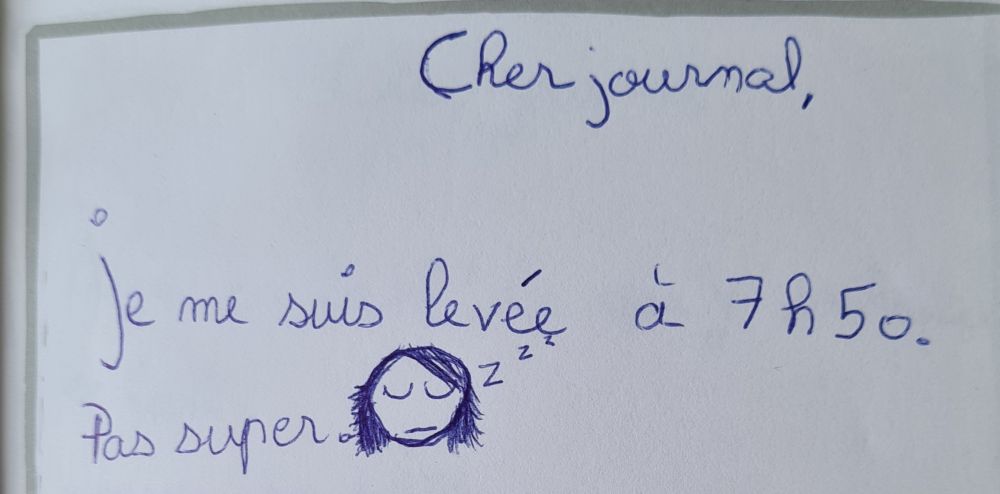 Cher journal,
je me suis levée à 7h50.
z z z
Pas super.